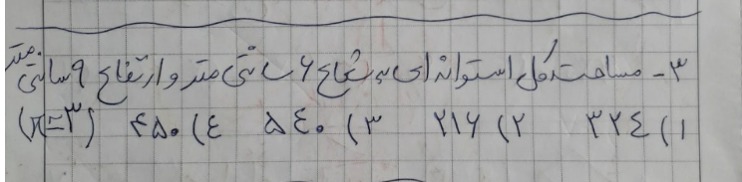 ۳- مساحت کل استوانه ای به شعاع ۶ سانتی متر و ارتفاع ۹ سانتی متر
۱) ۳۲۴ ۲) ۲۱۶ ۳) ۵۴۰ ۴) ۴۵۰ (π=۳)